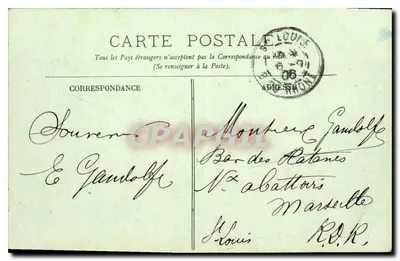 CARTE POSTALE
Tous les Pays étrangers n'acceptent pas la Correspondance au
(Se renseigner à la Poste).
CORRESPONDANCE
ST LOUIS
06
BES DU RHONE
Souvenir
E Gandolfe
Monsieur Gandolfe
Bar des Platanes
Nx abattoirs
Marseille
St Louis
B.D.R.